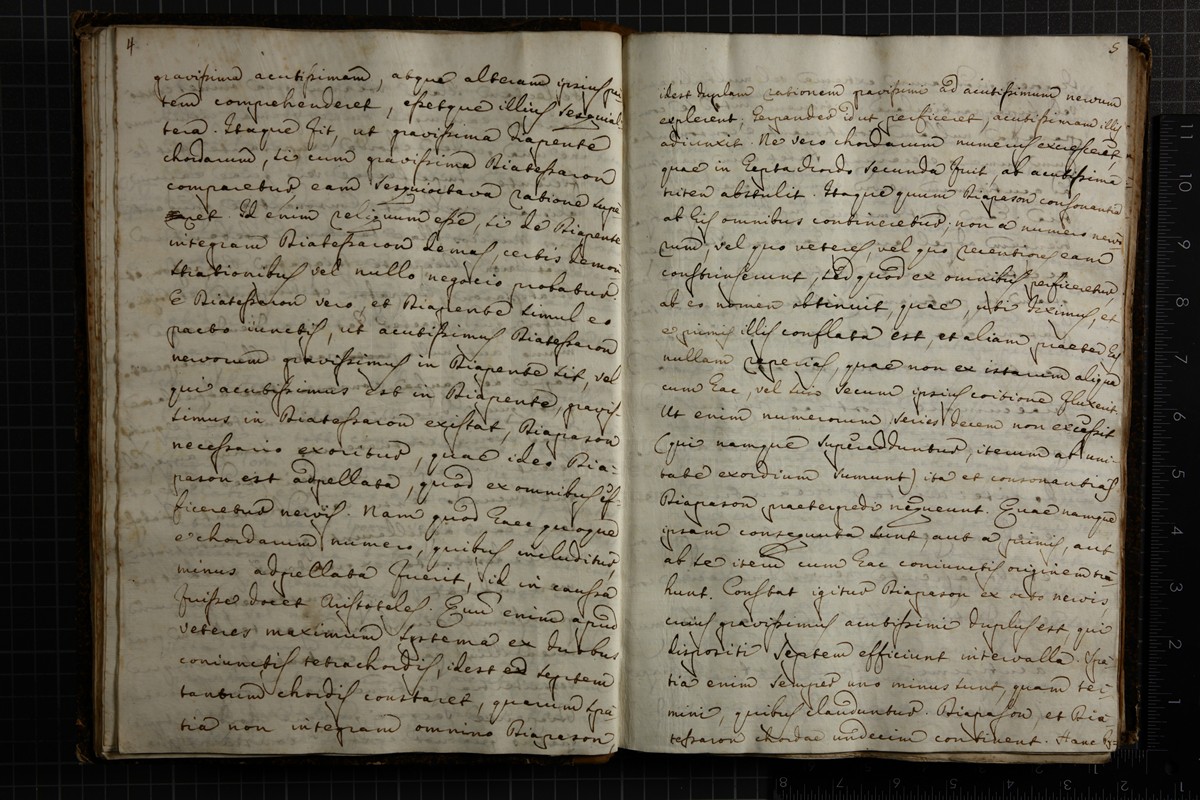 4
gravissima acutissimam, atque alteram ipsius par-
tem comprehenderet, essetque illius sesquial-
tera. Itaque fit, ut gravissima Diapente
chordarum, si cum gravissima Diatessaron
comparetur eam sesquioctava ratione supe-
ret. Id enim reliquum esse, si de Diapente
integram Diatessaron demas, certis demon
strationibus vel nullo negocio probatur.
E Diatessaron vero, et Diapente simul eo
pacto iunctis, ut acutissimus Diatessaron
nervorum gravissimus in Diapente sit, vel
qui acutissimus est in Diapente, gravis-
simus in Diatessaron existat, Diapason
necessario exoritur, quae ideo Dia-
pason est adpellata, quod ex omnibus ef-
ficeretur nervis. Nam quod haec quoque
e chordarum numero, quibus includitur,
minus adpellata fuerit, id in caussa
fuisse docet Aristoteles. Cum enim apud
veteres maximum systema ex duobus
coniunctis tetrachordis, idest ex septem
tantum chordis constaret, quarum spa
tia non integram omnino Diapason
5
idest duplam rationem gravissimi ad acutissimum nervum
explerent; Terpander id ut perficeret, acutissimam illis
adiunxit. Ne vero chordarum numerus excresceret
quae in heptachordo secunda fuit ab acutissima
triten abstulit. Itaque quum Diapason consonantia
ab his omnibus contineretur; non a numero nervo
rum, vel quo veteres, vel quo recentiores eam
constrinxerunt, sed quod ex omnibus perficeretur,
ab eo nomen obtinuit, quae, uti diximus, et
e primis illis conflata est, et aliam praeter has
nullam reperias, quae non ex istarum aliqua
cum hac, vel suo secum ipsius coitione fluxerit.
Ut enim numerorum series decem non excessit
(qui namque superadduntur, iterum ab uni-
tate exordium sumunt) ita et consonantias
Diapason praetergredi nequeunt. Quae namque
ipsam consequuta sunt, aut a primis, aut
ab se item cum hac coniunctis originem tra
hunt. Constat igitur Diapason ex octo nervis
cuius gravissimus acutissimi duplus est qui
dispositi septem efficiunt intervalla. Spa-
tia enim semper uno minus sunt, quam ter
mini, quibus clauduntur. Diapason, et Dia
tessaron chordae undecim continent. Hanc